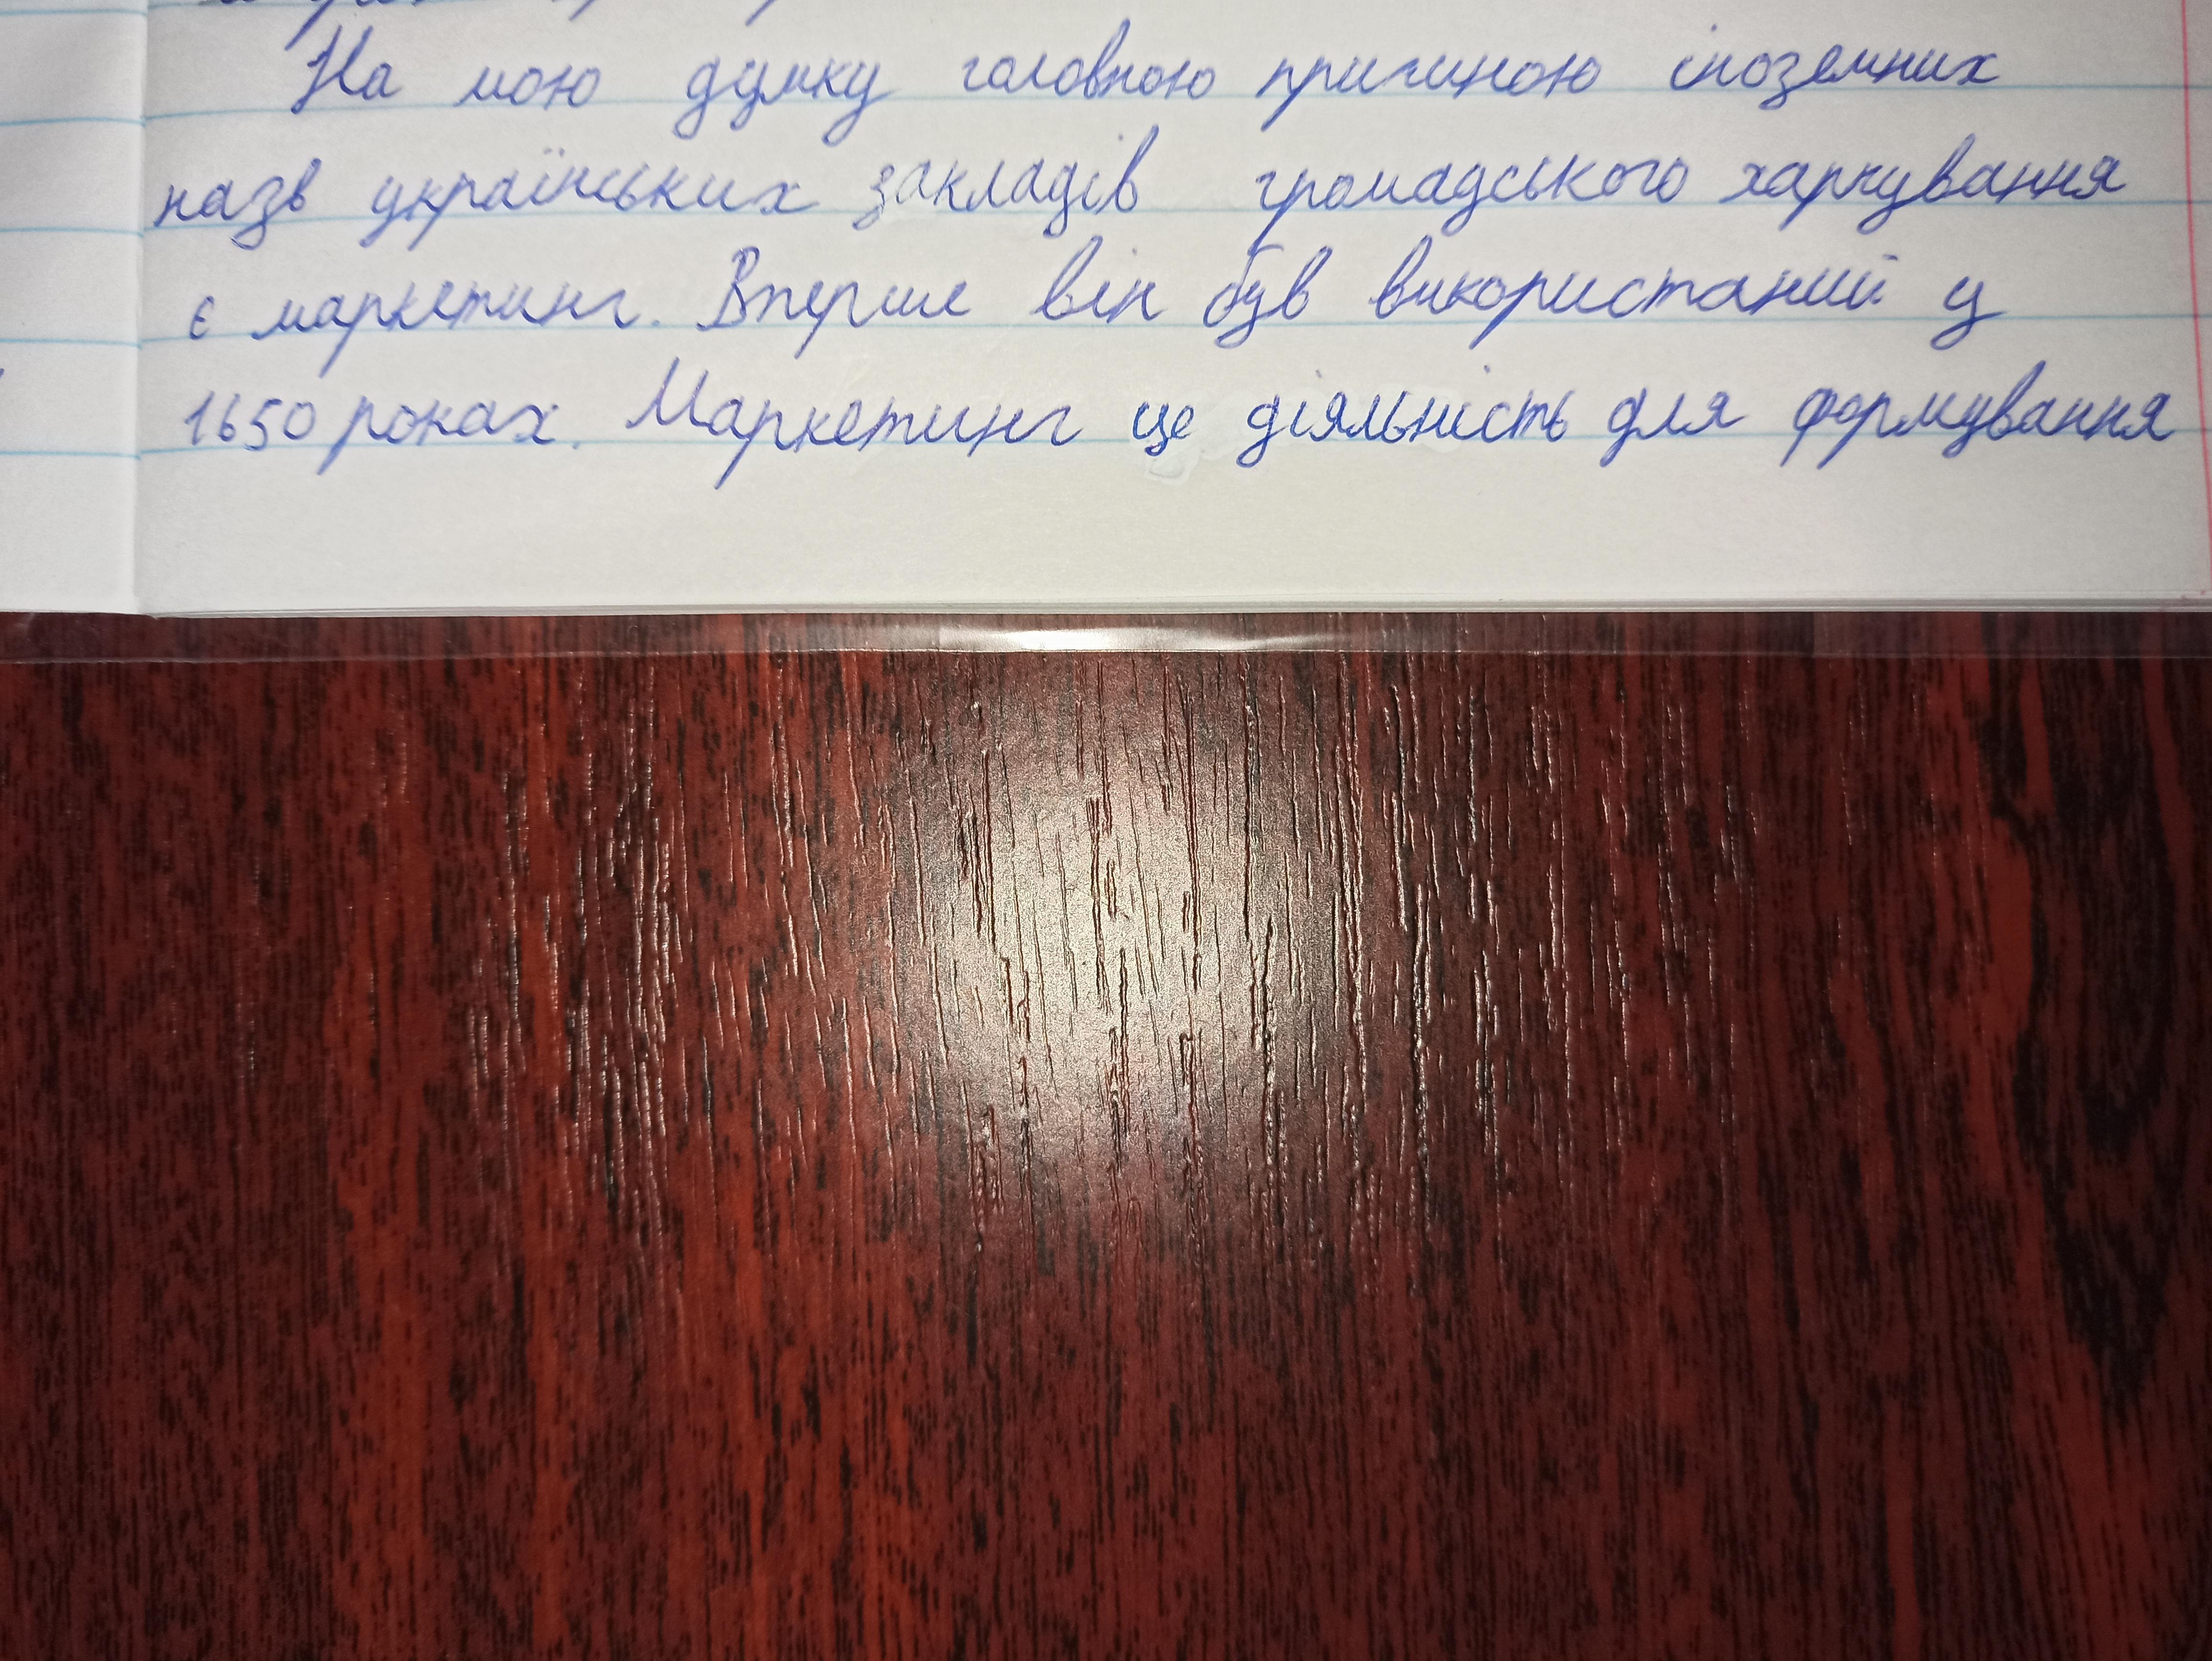 На мою думку головною причиною іноземних
назв українських закладів громадського харчування
є маркетинг. Вперше він був використаний у
1650 роках. Маркетинг це діяльність для формування